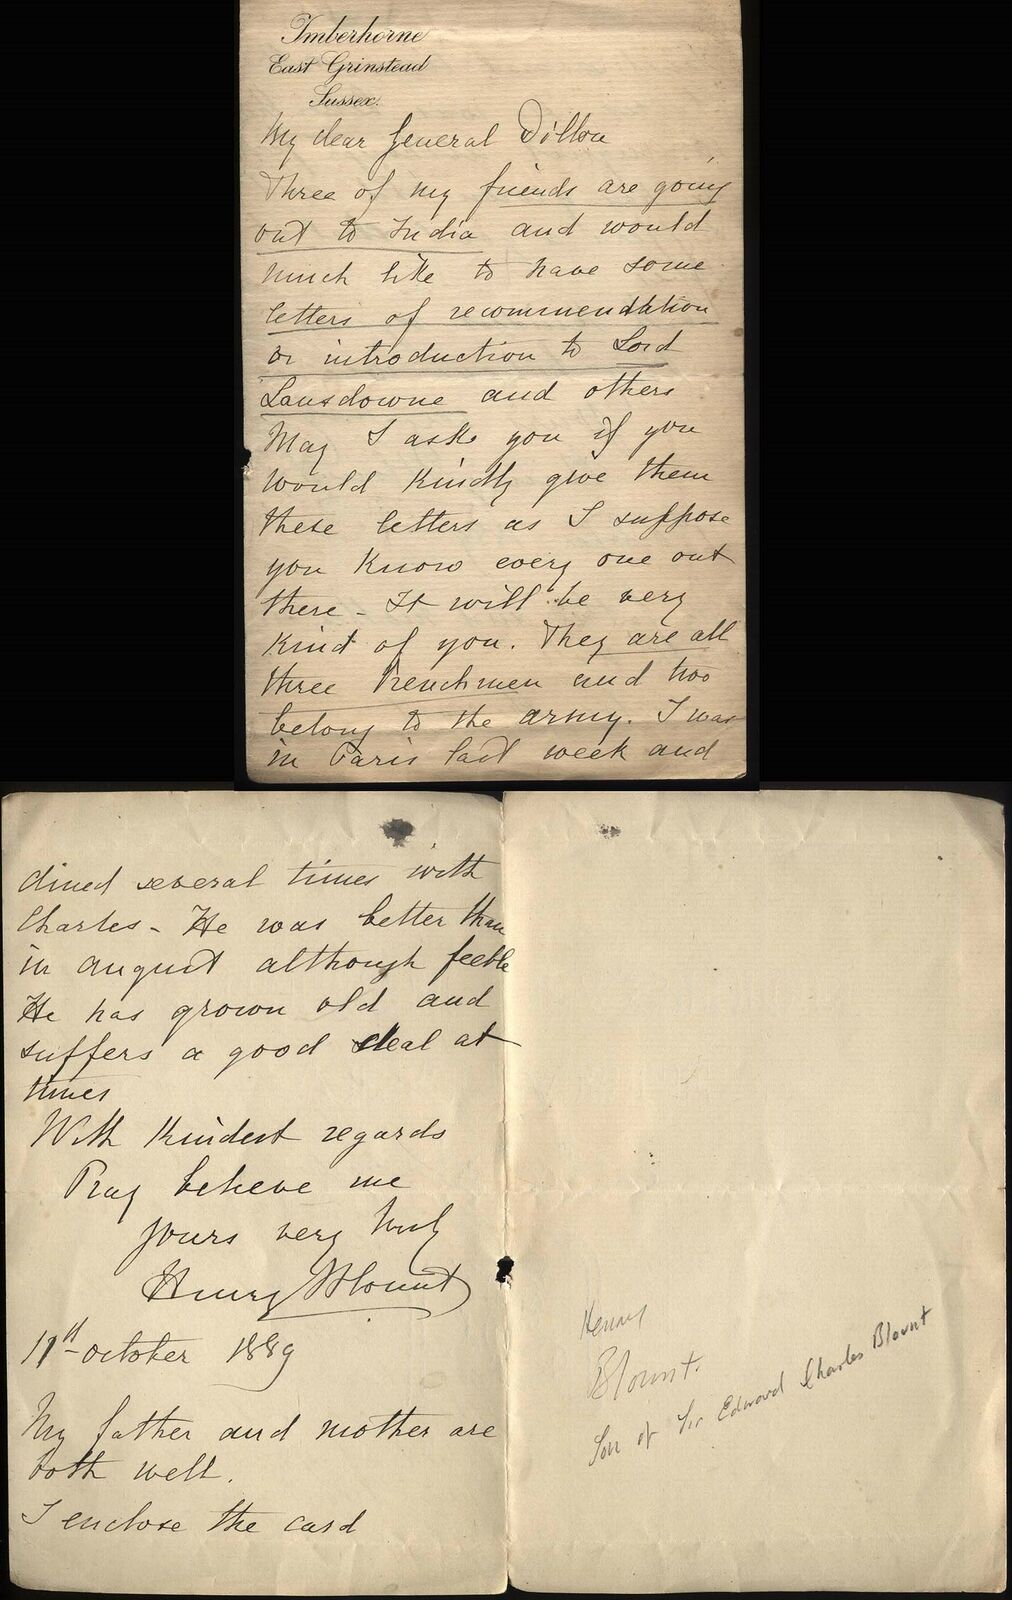 Imberhorne
East Grinstead
Sussex.
My dear General Dillon
Three of my friends are going
out to India and would
much like to have some
letters of recommendation
or introduction to Lord
Lansdowne and others
May I ask you if you
would kindly give them
these letters as I suppose
you know every one out
there - It will be very
kind of you. They are all
three Frenchmen and two
belong to the army. I was
in Paris last week and
dined several times with
Charles - He was better than
in august although feeble
He has grown old and
suffers a good deal at
times
With kindest regards
Pray believe me
yours very truly
Henry Blount
11d october 1889
My father and mother are
both well.
I enclose the card
Henry
Blount.
Son of Sir Edward Charles Blount